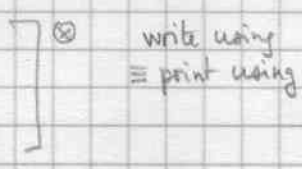 ⊗ write using
≡ print using